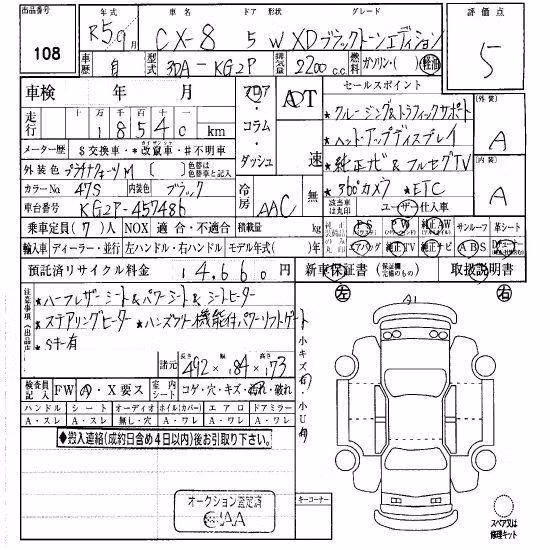 出品番号 年式 車名 ドア 形状 グレード 評価点
108 R5.9月 CX-8 5 W XDブラックトーンエディション 5
車歴 自 型式 3DA-KG2P 排気量 2200cc 燃料 ガソリン・( ) 軽油
車検 年 月
走行 十万千百十 18540 km
フロア・コラム・ダッシュ
AT 速
セールスポイント
★クルージング&トラフィックサポート
★ヘッドアップディスプレイ
★純正ナビ&フルセグTV
★360°カメラ ★ETC
外装 A
内装 A
メーター歴 $交換車・*改竄車・#不明車
外装色 プラチナクォーツM ( ) 色替は色替車と記入
カラーNo. 47S 内装色 ブラック
冷房 AAC 無
該当車は丸印 ユーザー仕入車
車台番号 KG2P-457486
乗車定員(7)人 NOX 適合・不適合 積載量 kg PS PW 純正AW サンルーフ 革シート
輸入車 ディーラー・並行 左ハンドル・右ハンドル モデル年式( )年 エアバッグ 純正TV 純正ナビ ABS
預託済リサイクル料金 14,660円 新車保証書(保証欄完備のもの) 取扱説明書
注意事項(出品店
★ハーフレザーシート&パワーシート&シートヒーター
★ステアリングヒーター ★ハンズフリー機能付パワーリフトゲート
★Sキー有
諸元 長さ492 幅184 高さ173
検査員記入 FW A・X要ス 室内シート コゲ・穴・キズ・汚れ・破れ
ハンドル シート オーディオ ホイル(カバー) エアロ ドアミラー
A・スレ A・スレ 無し・穴 A・ワレ A・ワレ A・ワレ
◆搬入連絡(成約日含め4日以内)後お引取り下さい。
オークション査定済
AA
キーコーナー
小キズ有・小U有
左 A1 右
スペア又は修理キット